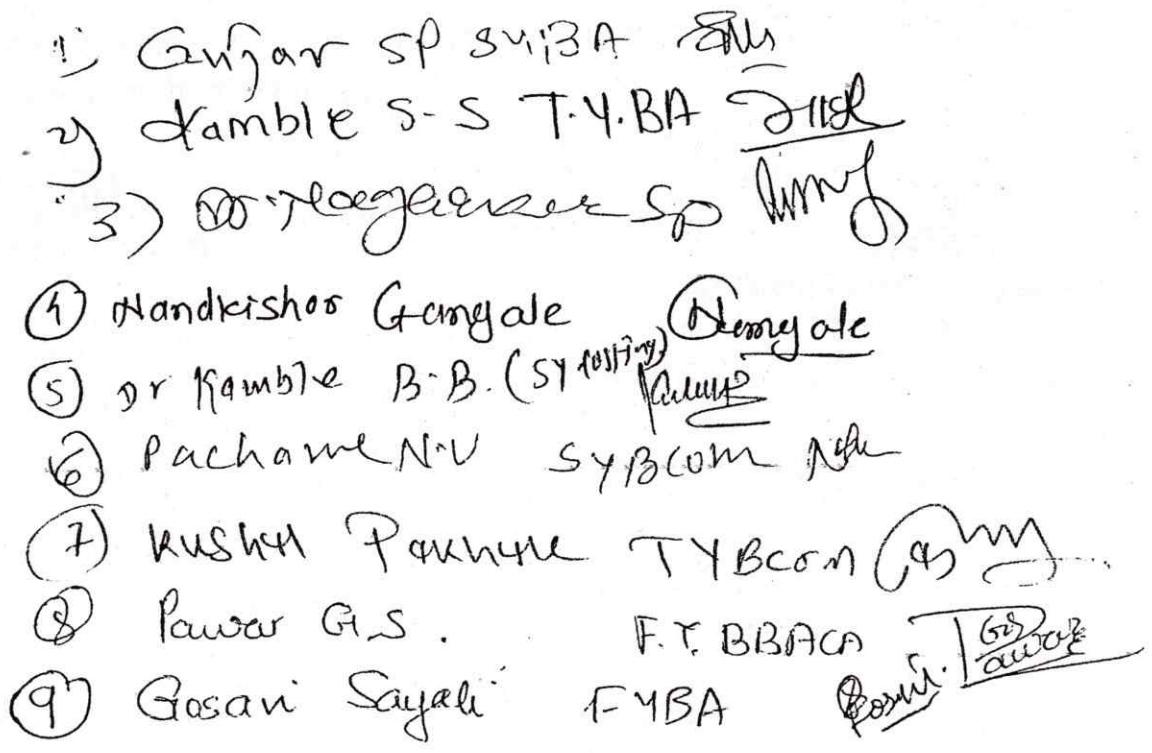 1) Gujar SP SYBA
2) Kamble S-S T.Y.BA
3) Dr. Nagarkar SP
4) Nandkishor Gangale Nangale
5) Dr Kamble B.B. (SY
6) Pachame N.V SYBCOM
7) Kushal Pakhale TYBCOM
8) Pawar G.S. F.Y. BBACA GS Pawar
9) Gosavi Sayali FYBA Gosavi.